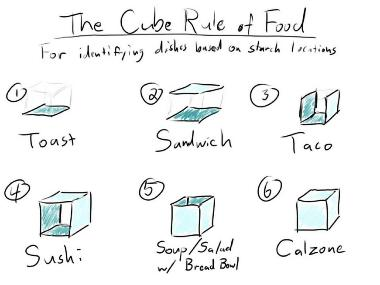 The Cube Rule of Food
For identifying dishes based on starch locations
① Toast
② Sandwich
③ Taco
④ Sushi
⑤ Soup/Salad
w/ Bread Bowl
⑥ Calzone